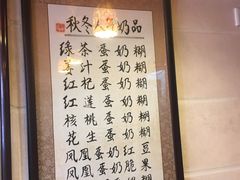 秋冬人气奶品
绿茶蛋奶糊
姜汁蛋奶糊
红杞蛋奶糊
红莲蛋奶糊
核桃蛋奶糊
花生蛋奶糊
凤凰蛋奶红豆
凤凰蛋奶脆果